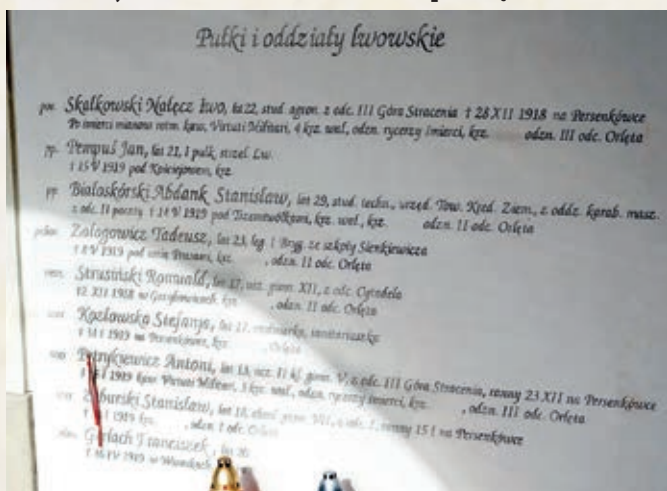 Pułki i oddziały lwowskie
por. Skałkowski Nałęcz Lwo, lat 22, stud. agron. z odc. III Góra Stracenia † 28 XII 1918 na Persenkówce
Po śmierci mianow. rotm. kaw., Virtuti Militari, 4 krz. wal., odzn. rycerzy śmierci, krz. odzn. III odc. Orlęta
pp. Pempuś Jan, lat 21, 1 pułk. strzel. Lw.
† 15 V 1919 pod krz.
pp. Białoskórski Abdank Stanisław, lat 29, stud. techn., urzęd. Tow. Kred. Ziem., z oddz. karab. masz.
z odc. II poczty † 14 V 1919 pod krz. wal., krz. odzn. II odc. Orlęta
Zołogowicz Tadeusz, lat 23, leg. 1 Bryg. ze szkoły Sienkiewicza
† 8 V 1919 pod krz. , odzn. II odc. Orlęta
Strusiński Romuald, lat 17, ucz. gimn. XII, z odc. Cytadela
XII 1918 w krz. , odzn. II odc. Orlęta
Kozłowska Stefanja, lat 27, sanitariuszka
1919 na Persenkówce, krz. Orlęta
Petrykiewicz Antoni, lat 13, ucz. II kl. gimn. V, z odc. III Góra Stracenia, ranny 23 XII na Persenkówce
1919 Virtuti Militari, 3 krz. wal., odzn. rycerzy śmierci, krz. , odzn. III odc. Orlęta
Stanisław, lat 18, gimn. VII, z odc. I, ranny 15 I na Persenkówce
1919 krz. , odzn. I odc. Orlęta
Gerlach Franciszek, lat 26
IV 1919 w